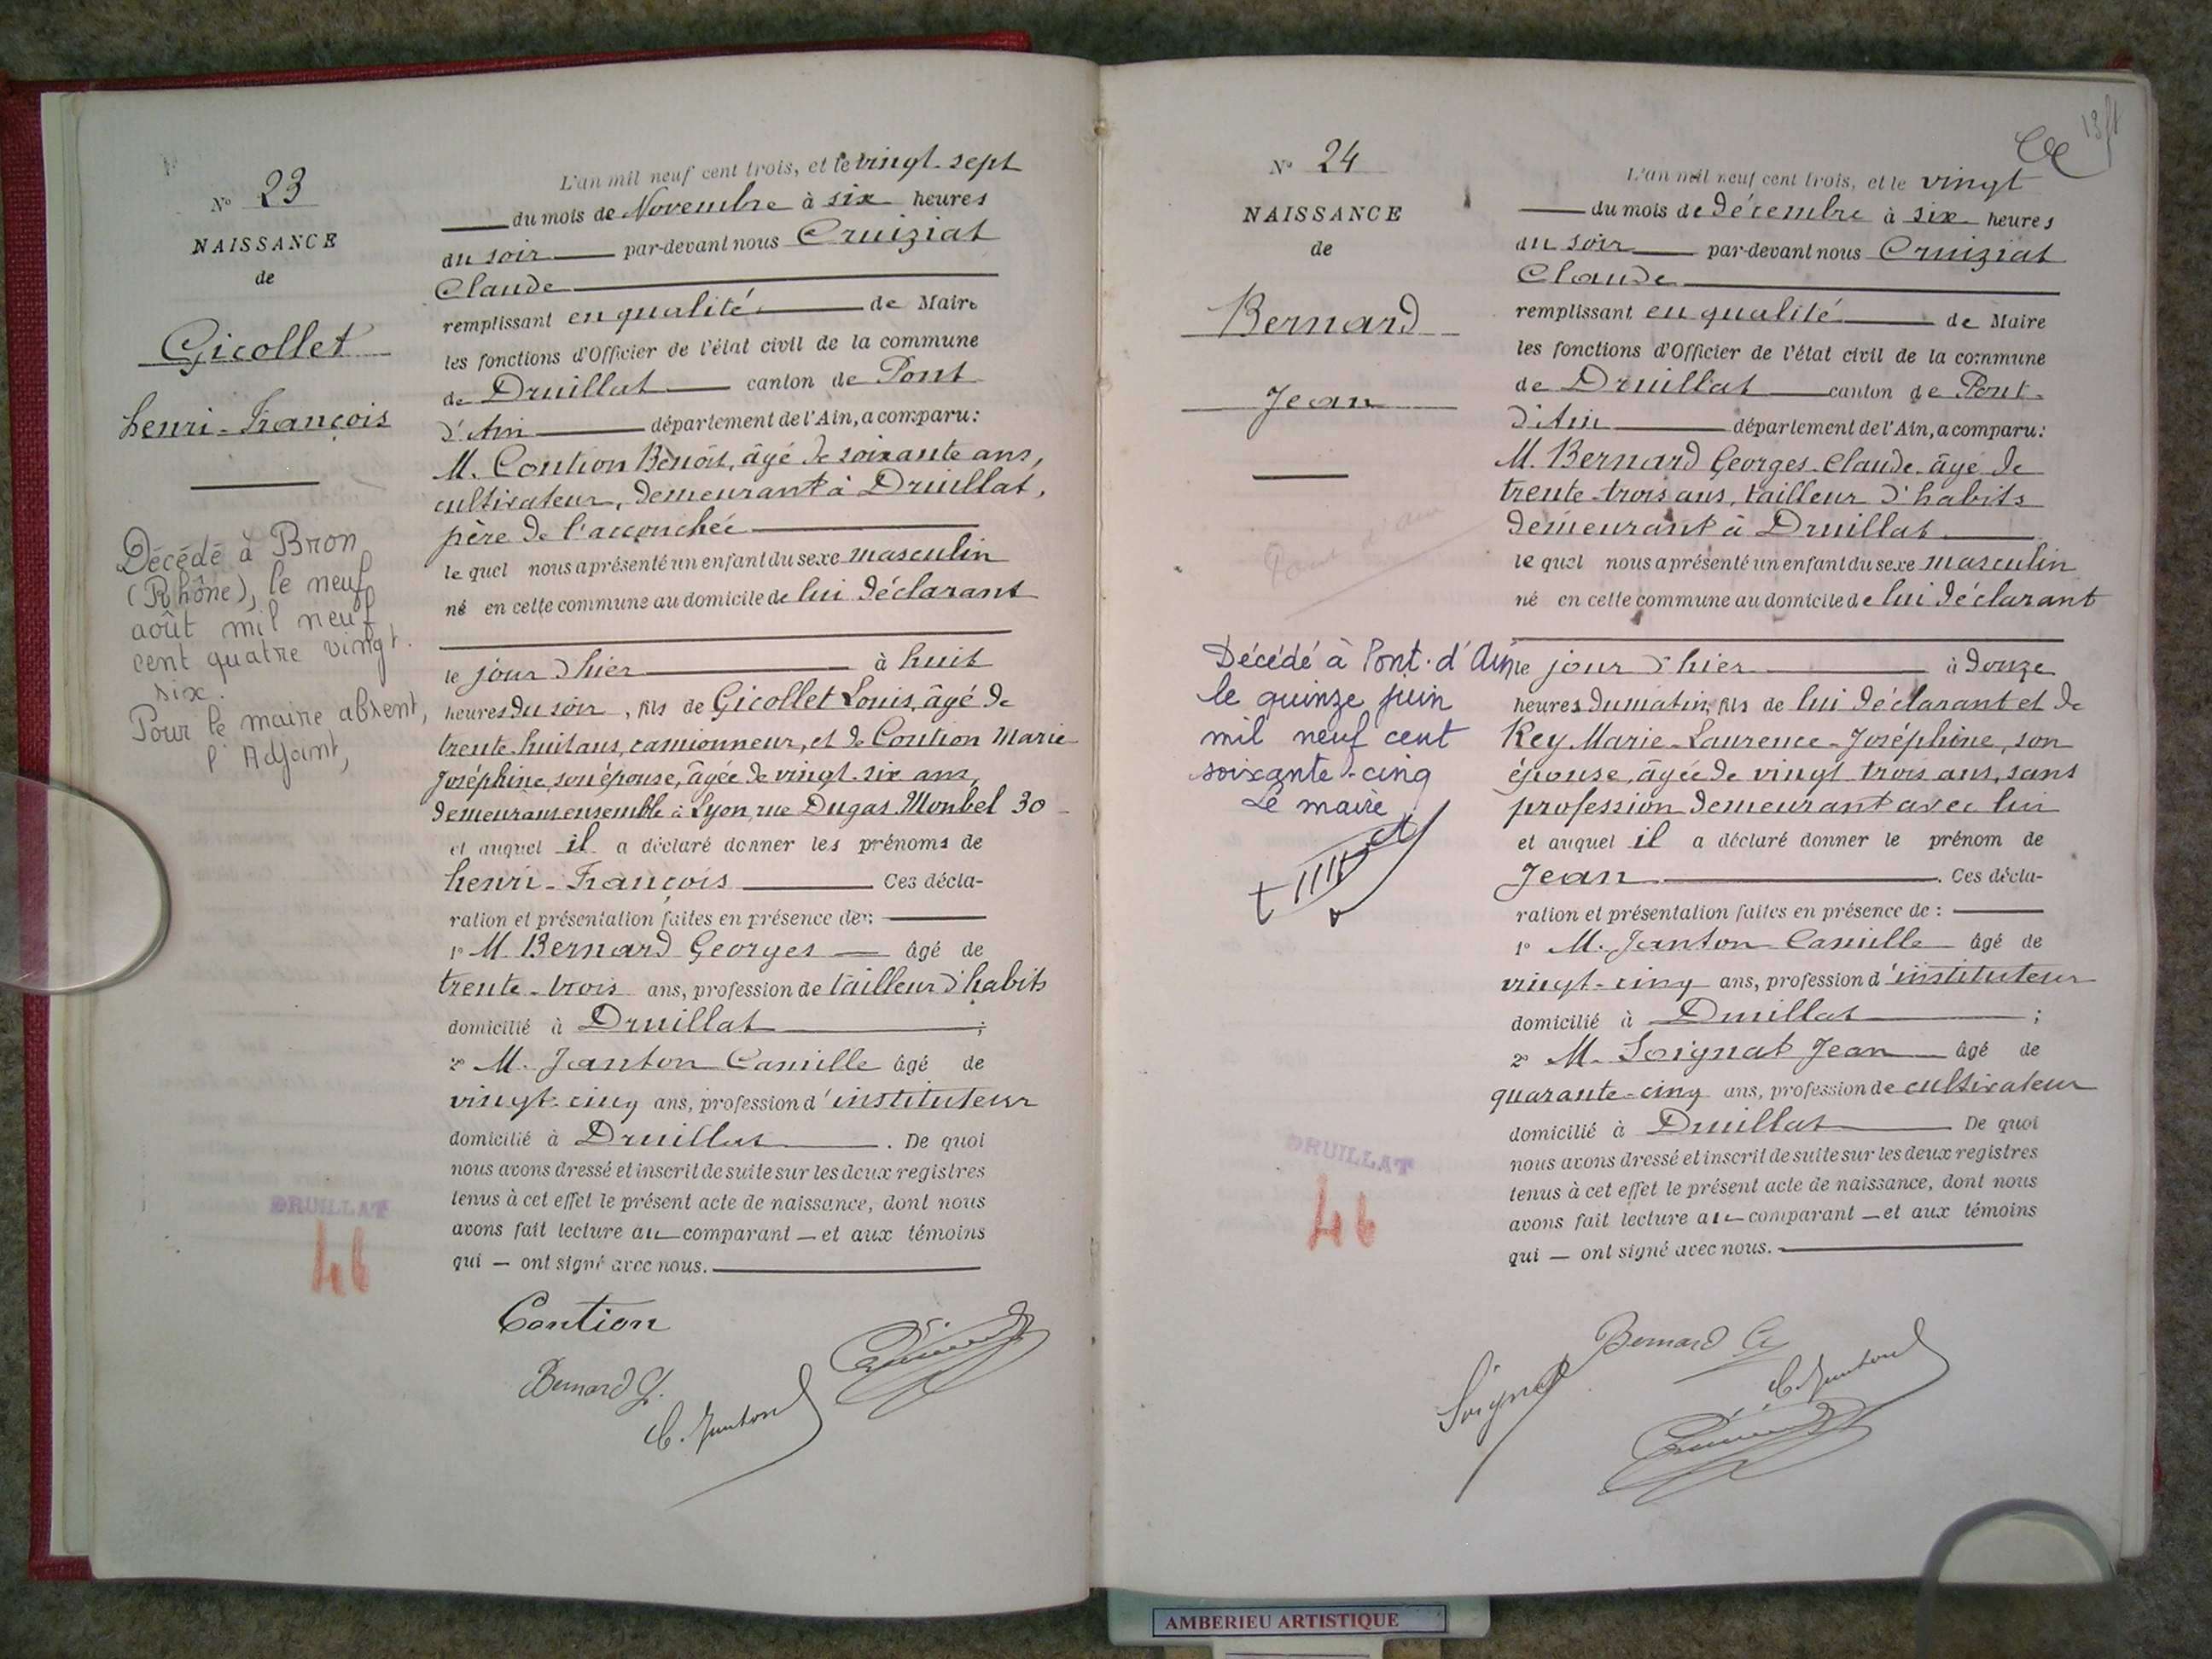 N° 23
NAISSANCE
de
Gicollet
henri-François
Décédé à Bron
(Rhône), le neuf
août mil neuf
cent quatre vingt.
six.
Pour le maire absent,
l'Adjoint,
DRUILLAT
46
L'an mil neuf cent trois, et le vingt-sept
du mois de Novembre à six heures
du soir par-devant nous Cruiziat
Claude
remplissant en qualité de Maire
les fonctions d'Officier de l'état civil de la commune
de Druillat canton de Pont
d'Ain département de l'Ain, a comparu:
M. Coution Benoît, âgé de soixante ans,
cultivateur, demeurant à Druillat,
père de l'accouchée
le quel nous a présenté un enfant du sexe masculin
né en cette commune au domicile de lui déclarant
le jour d'hier à huit
heures du soir, fils de Gicollet Louis, âgé de
trente-huit ans, camionneur, et de Coution Marie
Joséphine son épouse, âgée de vingt-six ans,
demeurant ensemble à Lyon, rue Dugas Monbel 30
et auquel il a déclaré donner les prénoms de
henri-François Ces décla-
ration et présentation faites en présence de:
1° M Bernard Georges âgé de
trente-trois ans, profession de tailleur d'habits
domicilié à Druillat ;
2° M. Janton Camille âgé de
vingt-cinq ans, profession d'instituteur
domicilié à Druillat . De quoi
nous avons dressé et inscrit de suite sur les deux registres
tenus à cet effet le présent acte de naissance, dont nous
avons fait lecture au comparant — et aux témoins
qui — ont signé avec nous.
Coution
Bernard G.
C. Janton
N° 24
NAISSANCE
de
Bernard
Jean
Pont d'Ain
Décédé à Pont-d'Ain
le quinze juin
mil neuf cent
soixante-cinq
Le maire
DRUILLAT
46
L'an mil neuf cent trois, et le vingt
du mois de Décembre à six heures
du soir par-devant nous Cruiziat
Claude
remplissant en qualité de Maire
les fonctions d'Officier de l'état civil de la commune
de Druillat canton de Pont-
d'Ain département de l'Ain, a comparu:
M. Bernard Georges-Claude âgé de
trente-trois ans, tailleur d'habits
demeurant à Druillat
le quel nous a présenté un enfant du sexe masculin
né en cette commune au domicile de lui déclarant
le jour d'hier à douze
heures du matin, fils de lui déclarant et de
Rey Marie-Laurence-Joséphine, son
épouse, âgée de vingt trois ans, sans
profession demeurant avec lui
et auquel il a déclaré donner le prénom de
Jean . Ces décla-
ration et présentation faites en présence de :
1° M. Janton Camille âgé de
vingt-cinq ans, profession d'instituteur
domicilié à Druillat ;
2° M. Soignat Jean âgé de
quarante-cinq ans, profession de cultivateur
domicilié à Druillat De quoi
nous avons dressé et inscrit de suite sur les deux registres
tenus à cet effet le présent acte de naissance, dont nous
avons fait lecture au comparant — et aux témoins
qui — ont signé avec nous.
Bernard G
Soignat
C. Janton
AMBERIEU ARTISTIQUE